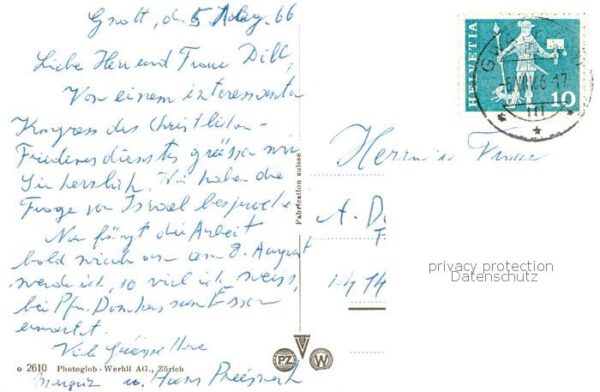 Gwatt, den 5. Aug. 66
Liebe Herr und Frau Dill,
Von einem interessanten
Kongress des Christlichen
Friedensdienstes grüssen wir
Sie herzlich. Wir haben die
Frage von Israel besprochen
Nun fängt die Arbeit
bald wieder an am 8. August
werde ich, so viel ich weiss,
bei Pfr. zum Essen
erwartet.
Viele Grüsse Ihre
u. Hans
HELVETIA
10
Herrn u. Frau
A. D
Fabrication suisse
privacy protection
Datenschutz
o 2610 Photoglob-Wehrli AG., Zürich
PZ
W